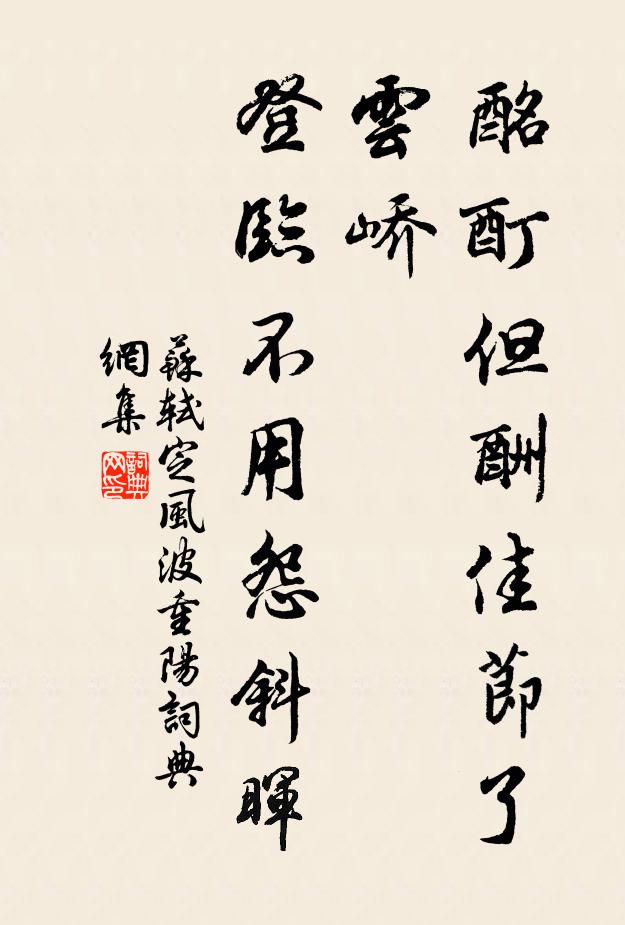 酩酊但酬佳節了
雲嶠
登臨不用怨斜暉
蘇軾定風波重陽詞典
網集
詞典網印